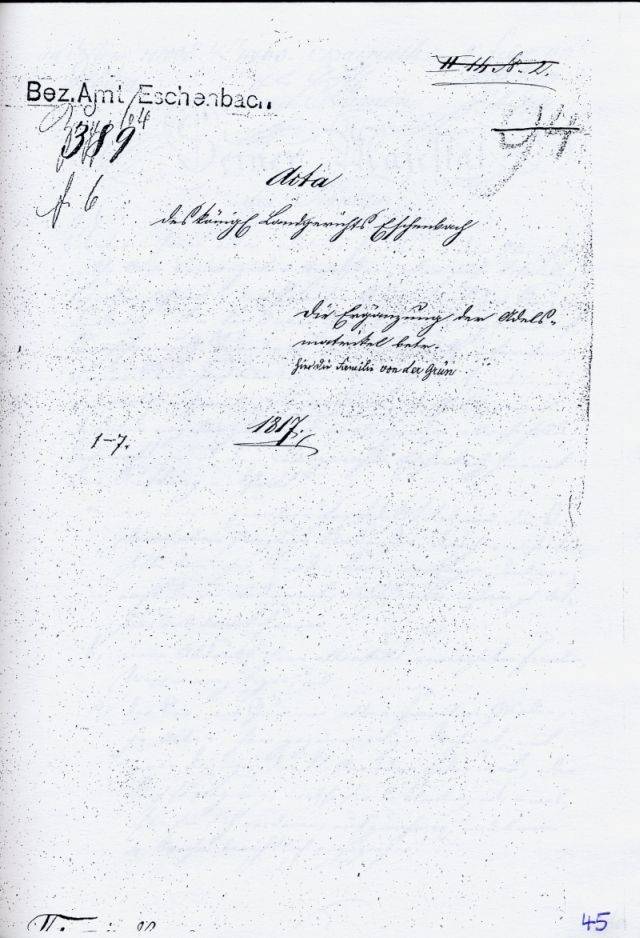 Bez. Amt Eschenbach.
389
f. 6
94
Acta
des königl Landgerichts Eschenbach
Die Ergänzung der Adels-
matrikel betr.
hier die Familie von der Grün
1817.
1-7.
II.
45